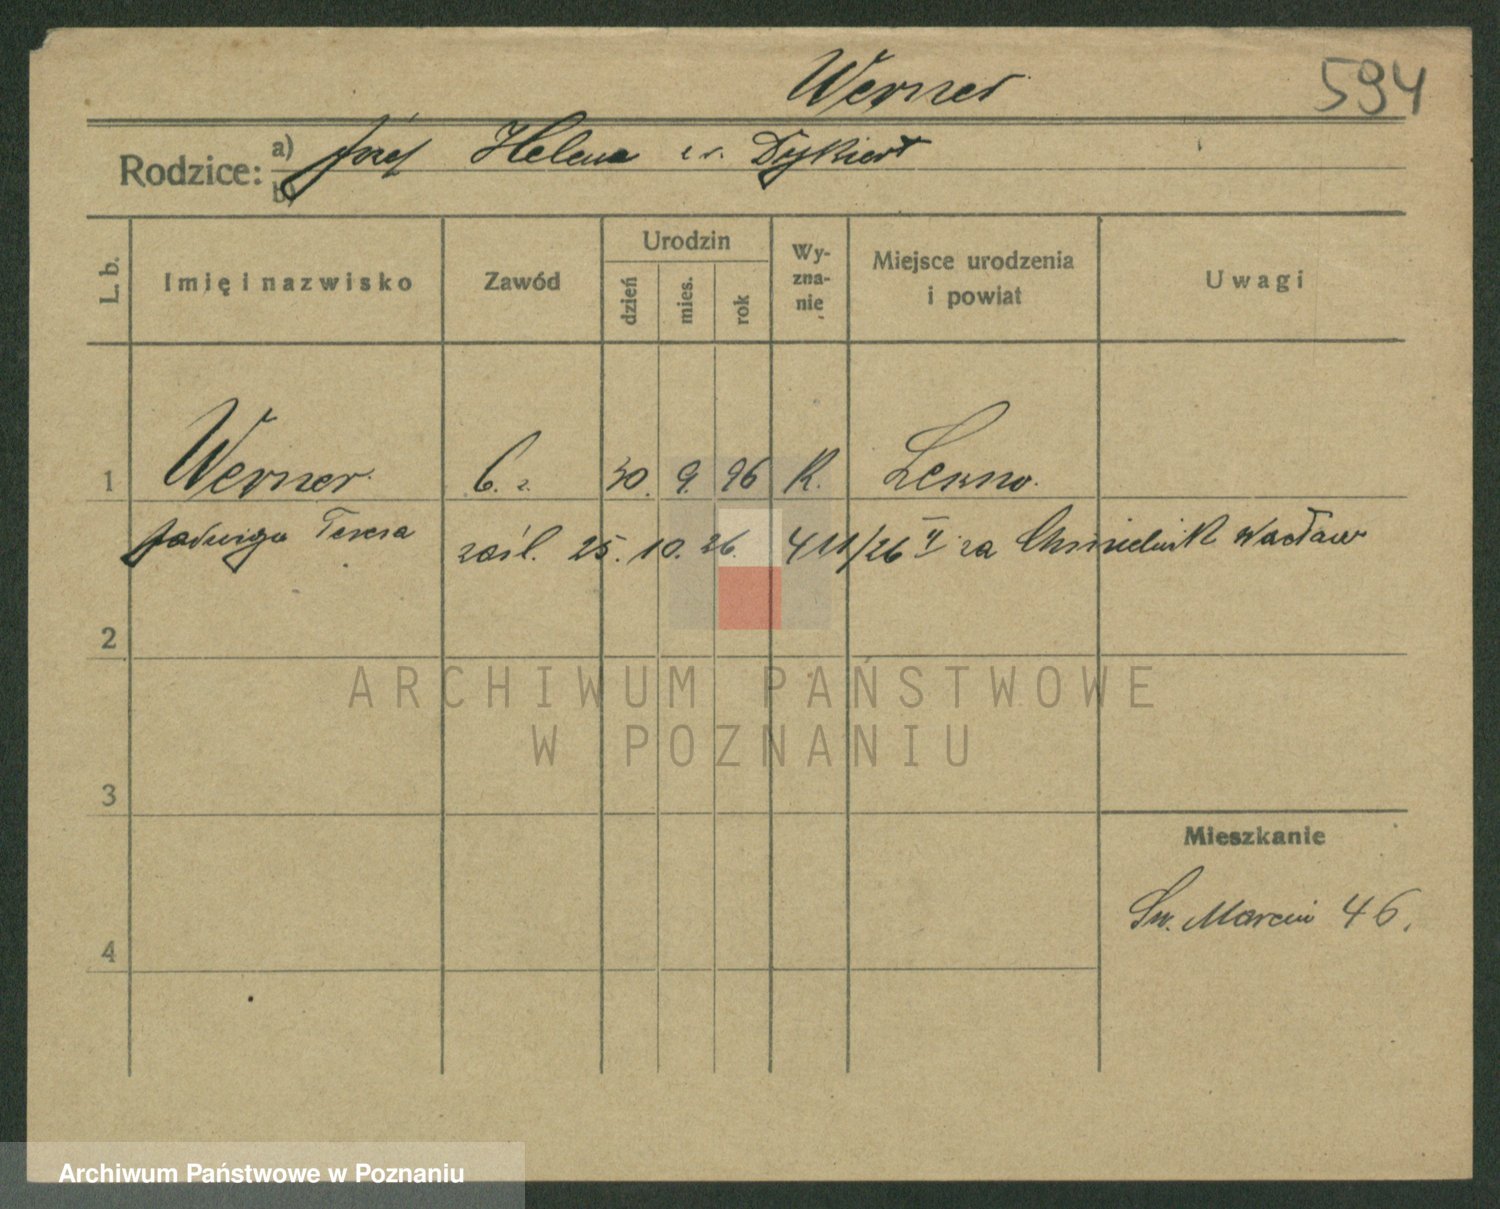 Werner
594
Rodzice: a) Józef Helena z d. Dykiert
b)
L. b.
Imię i nazwisko
Zawód
Urodzin
dzień
mies.
rok
Wy-
zna-
nie
Miejsce urodzenia
i powiat
Uwagi
1 Werner 30. 9. 96 K. Lekno.
Jadwiga Teresa
zaśl. 25. 10. 26. 411/26 II za Chmielnik Wacław
2
3
4
Mieszkanie
Św. Marcin 46.
ARCHIWUM PAŃSTWOWE
W POZNANIU
Archiwum Państwowe w Poznaniu